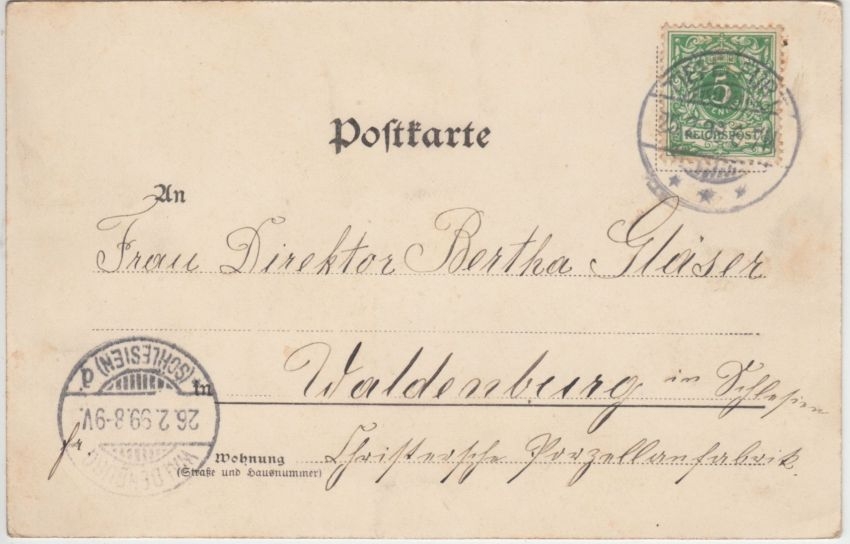 5
REICHSPOST
Postkarte
An
Frau Direktor Bertha Gläser
in Waldenburg in Schlesien
(SCHLESIEN) d.
26.2.99.8-9V.
WALDENBURG
fr
Wohnung Christersche Porzellanfabrik.
(Straße und Hausnummer)